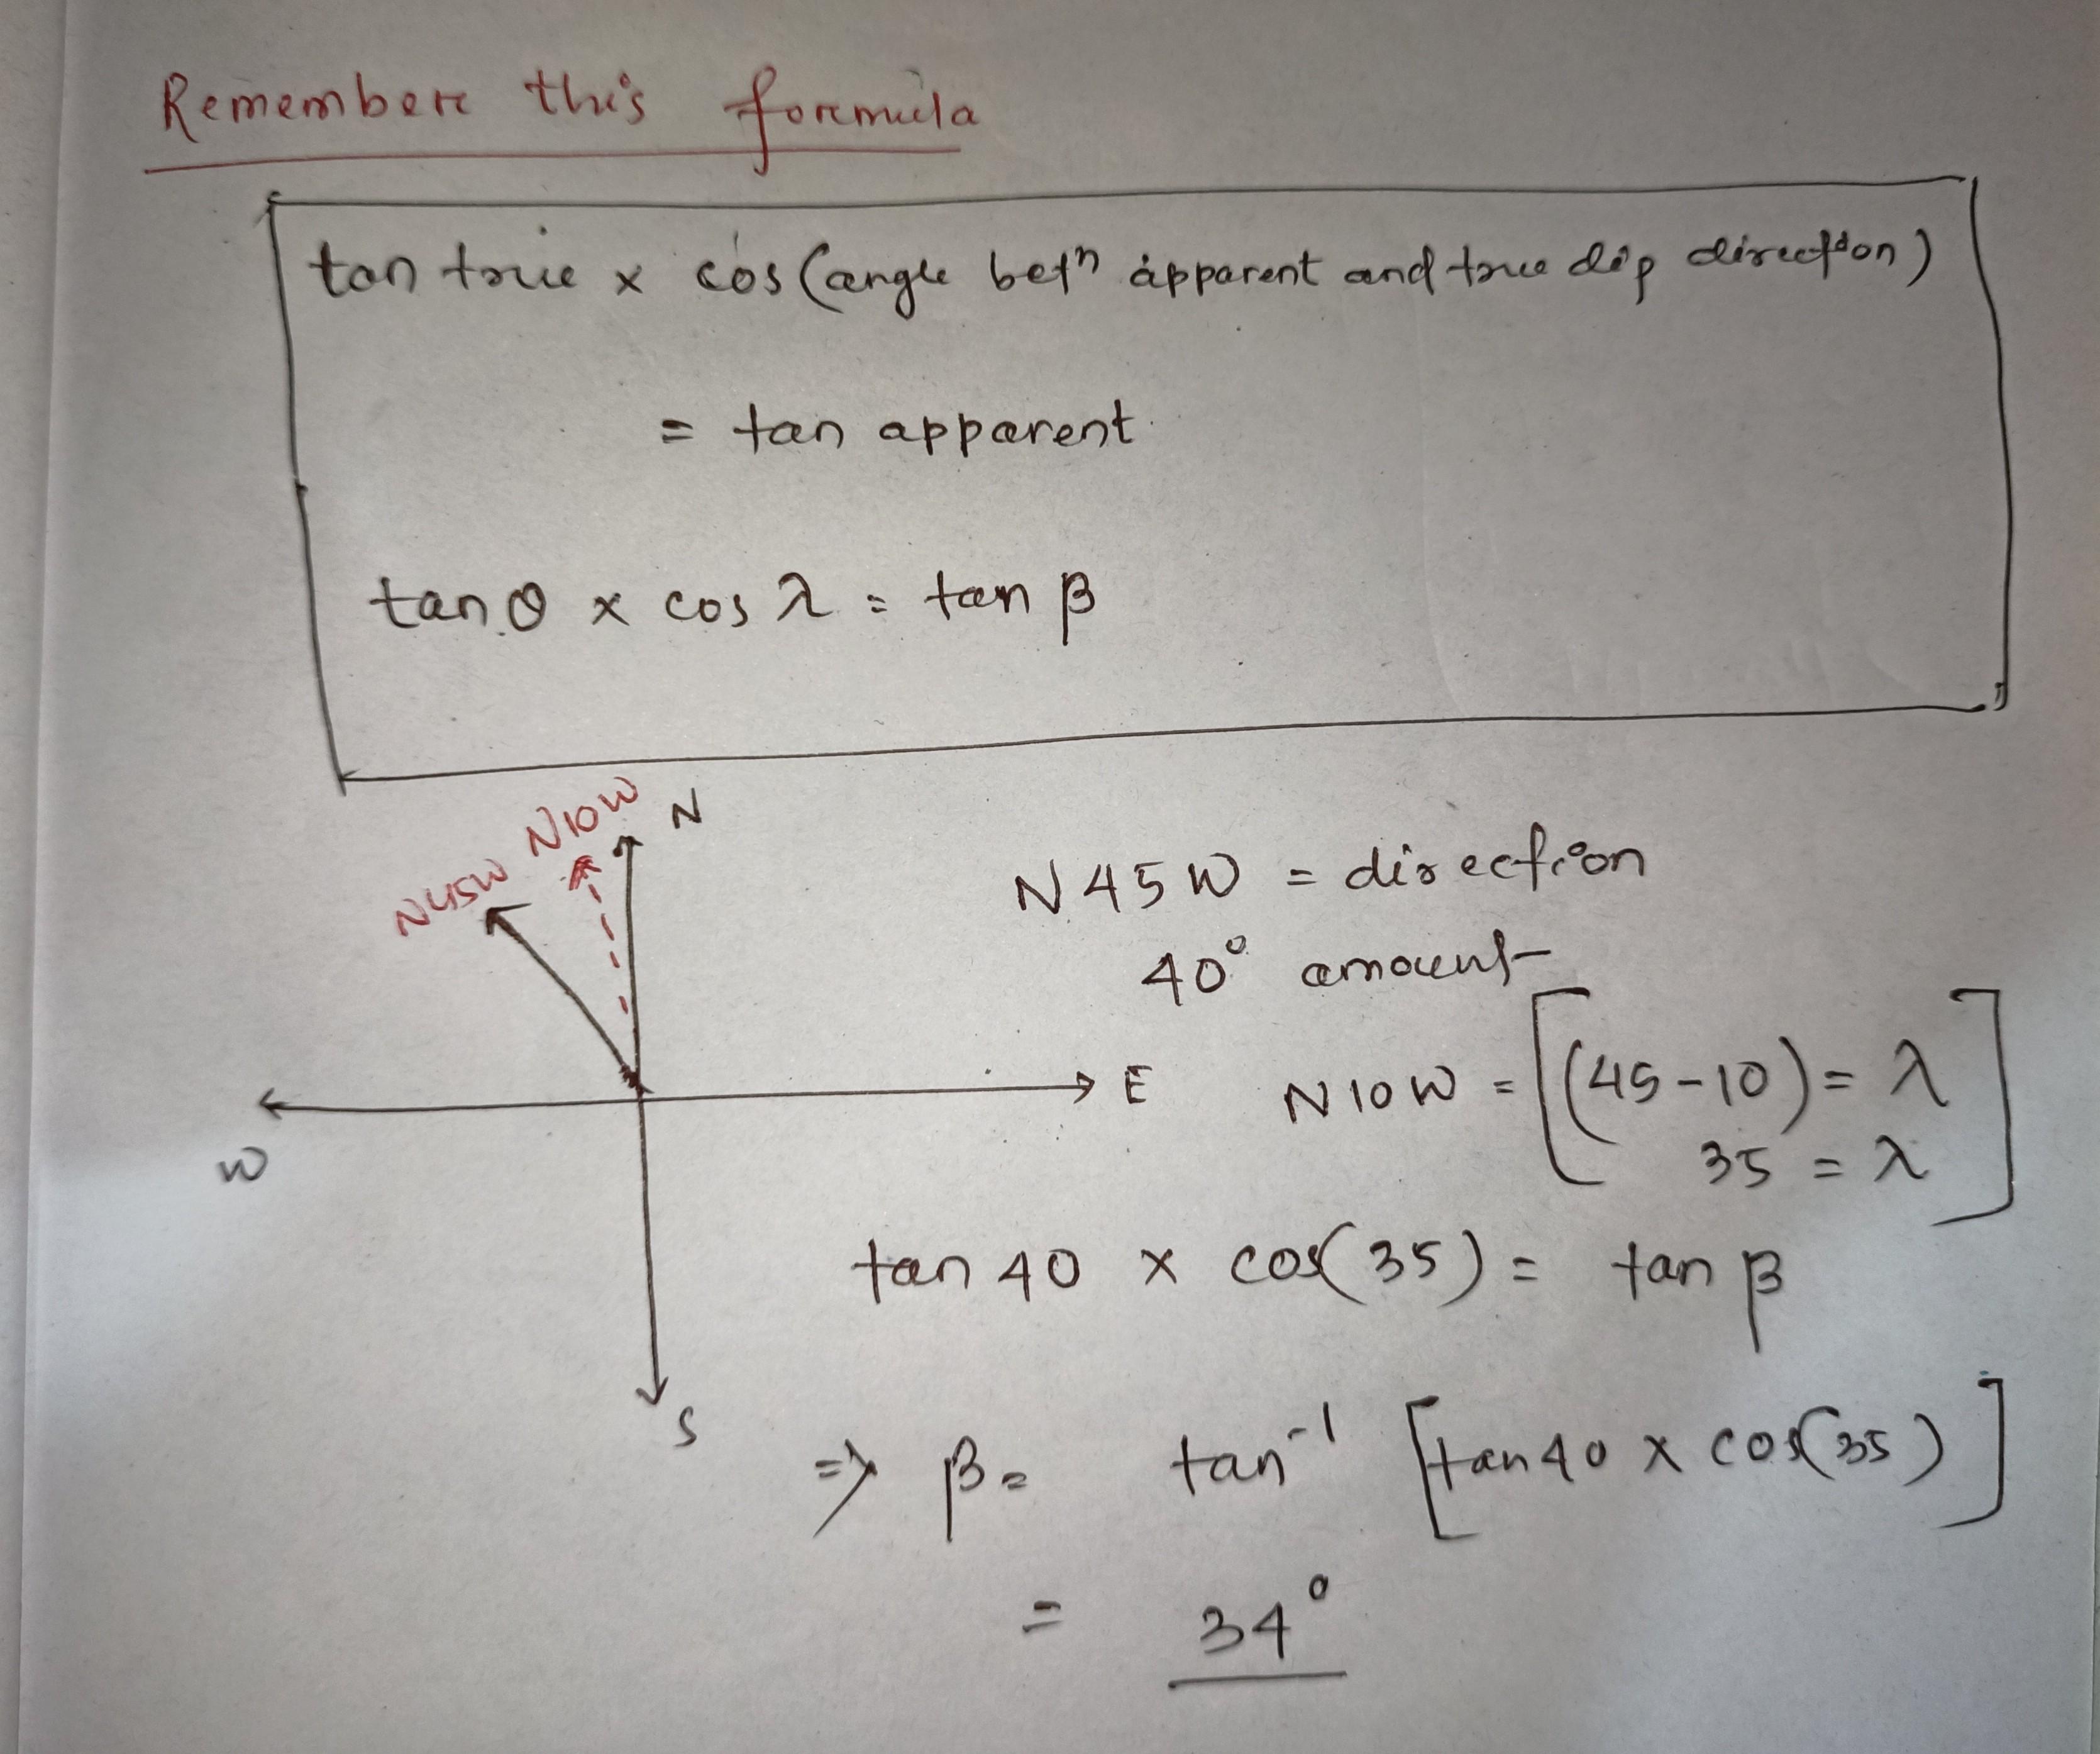 Remember this formula
tan true x cos (angle betn apparent and true dip direction)
= tan apparent
tan θ x cos λ = tan β
N10W
N
N45W
N 45 W = direction
40° amount
E
N 10 W = [(45-10) = λ
35 = λ]
W
tan 40 x cos(35) = tan β
S
=> β = tan⁻¹ [tan 40 x cos(35)]
= 34°